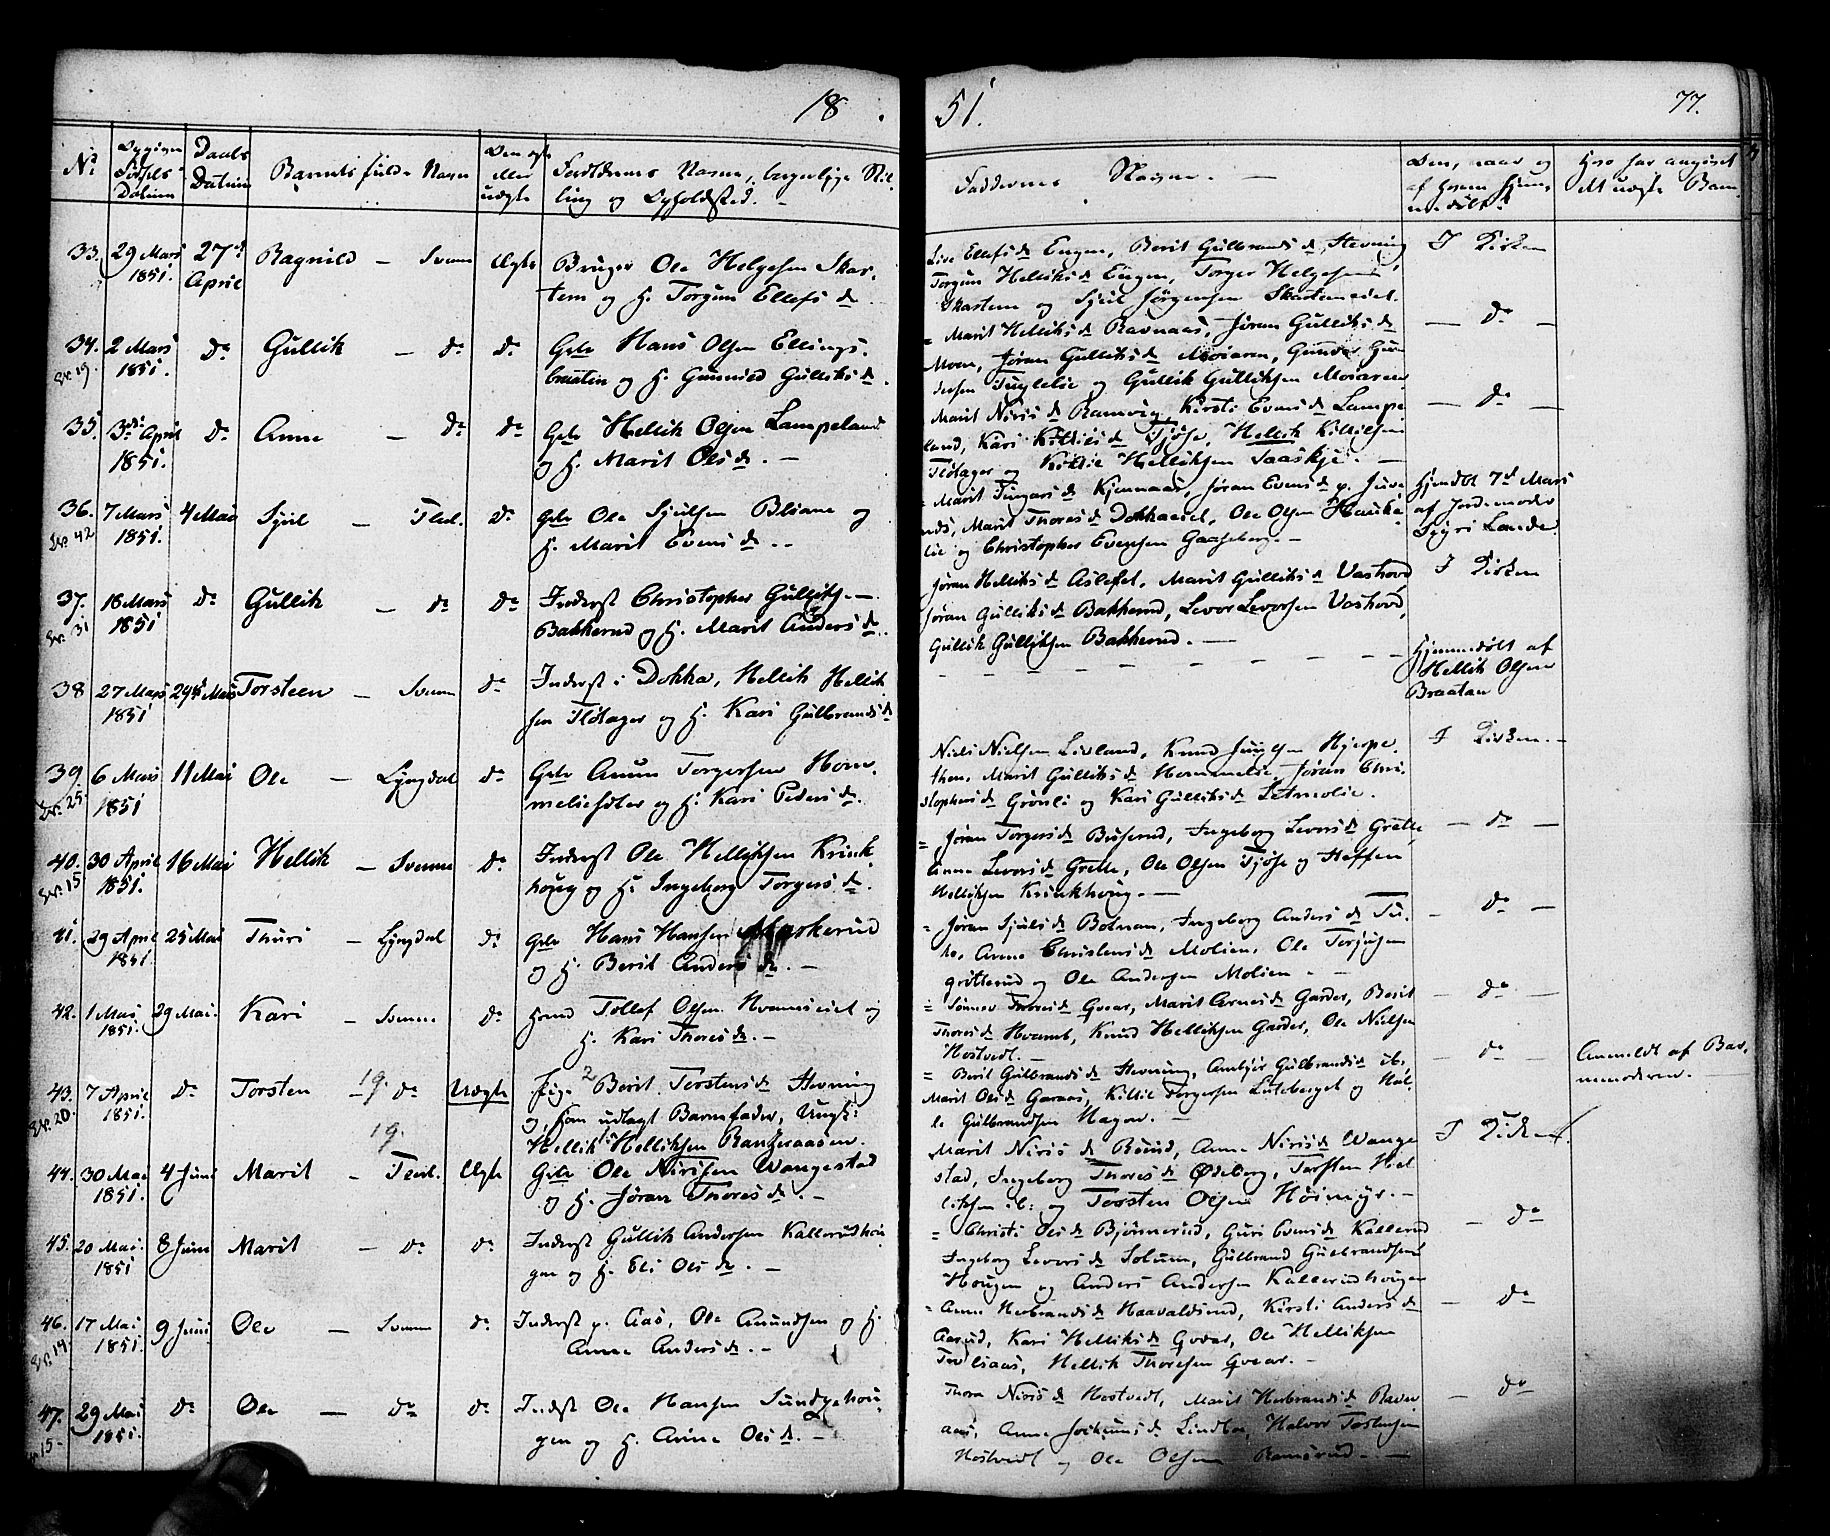 18 51. 77.
No Opgiven Fødsels Datum
Daabs Datum
Barnets fulde Navn
Om ægte eller uægte
Forældrenes Navne, borgerlige Stilling og Opholdsted.
Faddernes Navne.
Om, naar og af hvem hjemmedøbt.
Hvo har angivet det uægte Barn.
33. 29 Mars 1851. 27d April Ragnild - Svenne Ægte
Bruger Ole Helgesen Skartem og H. Torgun Ellefsd.
Live Ellefsd Engen, Berit Gulbrandsd. Stevning
Torgun Helliksd Engen, Torger Helgesen
Skartem og Sjul Jørgensen Skartemeiet.
I Kirken
34. 2 Mars 1851. do Gullik - do do
Gbr Hans Olsen Ellingsbraaten og H. Gunnild Gulliksd.
= Marit Helliksd Ravnaas, Jøran Gulliksd
Moen, Jøran Gulliksd Moiaren, Gunder Gundersen og Gullik Gulliksen Moiaren
- do -
35. 3die April 1851. do Anne - do do
Gbr Hellik Olsen Lampeland
og H. Marit Olsd. -
Marit Nirisd Ramvig, Kirsti Evensd Lampeland, Kari Kittilsd Tjøse, Hellik Kittilsen
Fløtager og Kittil Helliksen Saaskje. -
- do -
36. 7 Mars 1851. 4 Mai Sjul - Flesb. do
Gbr Ole Sjulsen Bliane og
H. Marit Evensd. -
= Marit Kjennaas, Jøran Evensd
Marit Thoresd Dokkaeiet, Ole Olsen Haukelie og Christopher Evensen Gaaseberg. -
Hjemdbt 7d Mars
af Jordemoder
Sigri Lande
37. 18 Mars 1851 do Gullik - do do
Inderst Christopher Gulliks. -
Bakkerud og H. Marit Andersd.
Jøran Helliksd Aslefet, Marit Gulliksd Vashovd
Jøran Gulliksd Bakkerud, Levor Levorsen Vashovd,
Gullik Gulliksen Bakkerud. -
I Kirken
38 27 Mars 1851 29d Mars Torsteen - Svenne do
Inderst i Dokka, Hellik Helliksen Fløtager og H. Kari Gulbrandsd
- - - - - - -
Hjemmedøbt af
Hellik Olsen
Braatan
39. 6 Mars 1851 11 Mai Ole - Lyngdal do
Gbr Anun Torgersen Hommeliesæter og H. Kari Pedersd.
Niels Nielsen Livland, Knud Hjerpethen, Marit Gulliksd Hommelie, Jøran Christophersd Grønli og Kari Gulliksd Letmolie.
I Kirken. -
40. 30 April 1851. 16 Mai Hellik - Svenne do
Inderst Ole Helliksen Krinkhoug og H. Ingeborg Torgersd.
= Jøran Torgersd Buserud, Ingeborg Leversd Grette,
Anne Leversd Grette, Ole Olsen Tjøse og Steffen
Helliksen Krinkhoug. -
- do -
41. 29 April 1851. 25 Mai Thuri - Lyngdal do
Gbr Hans Hansen
og H. Berit Andersd. -
= Jøran Sjulsd Botnan, Ingeborg Andersd
Anne Christensd Molien, Ole Torjusen
Grøtterud og Ole Andersen Molien. -
- do -
42. 1 Mai 1851. 29 Mai. Kari - Svenne do
Hmd Tollef Olsen Hvameiet og
H. Kari Thoresd. -
= Sønnev Thoresd Qvar, Marit Arnesd Garder, Berit
Thoresd Hvamb, Knud Helliksen Garder, Ole Nielsen
Hostvedt. -
- do -
43. 7 April 1851. do Torsten 19. - do Uægte
Pige 2 Berit Torstensd Stevning
og som udlagt Barnefader, Ungk:
19. Hellik Helliksen
= Berit Gulbrandsd Stevning, Ambjør Gulbrandsd ib.
Marit Olsd Garaas, Kittil Torgersen Luteberget og
Gulbrandsen Hagen. -
- do -
Anmeldt af Barnemoderen.
44. 30 Mai 1851. 4 Juni Marit - Flesb. Ægte
Gbr Ole Nirisen Wangestad
og H. Jøran Thoresd. -
Marit Nirisd Anne Nirisd Wangestad, Ingeborg Thoresd Ødeberg, Torsten Helliksen ib: og Torsten Olsen Høimyr. -
I Kirken.
45. 20 Mai. 1851 8 Juni Marit - do do
Inderst Gullik Andersen Kallerudhougen og H. Eli Olsd. -
= Christi Olsd Bjørnerud, Guri Evensd Kallerud
Ingeborg Leversd Solum, Gulbrand Gulbrandsen
Hougen og Anders Andersen Kallerudhougen
- do
46. 17 Mai 1851. 9 Juni Ole - Svenne do
Inderst p. Aas, Ole Amundsen og H.
Anne Andersd. -
= Anne Herbrandsd Haavaldsrud, Kirsti Andersd
Aasrud, Kari Helliksd Qvar, Ole Helliksen
Hellik Thoresen Qvar. -
- do
47. 29 Mai 1851. do Ole - do do
Indst Ole Hansen
og H. Anne Olsd. -
Thora Nirisd Hostvedt, Marit Herbrandsd Ravnaas, Anne Lindboe, Halvor Torstensen
Hostvedt og Ole Olsen Ramsrud. -
- do